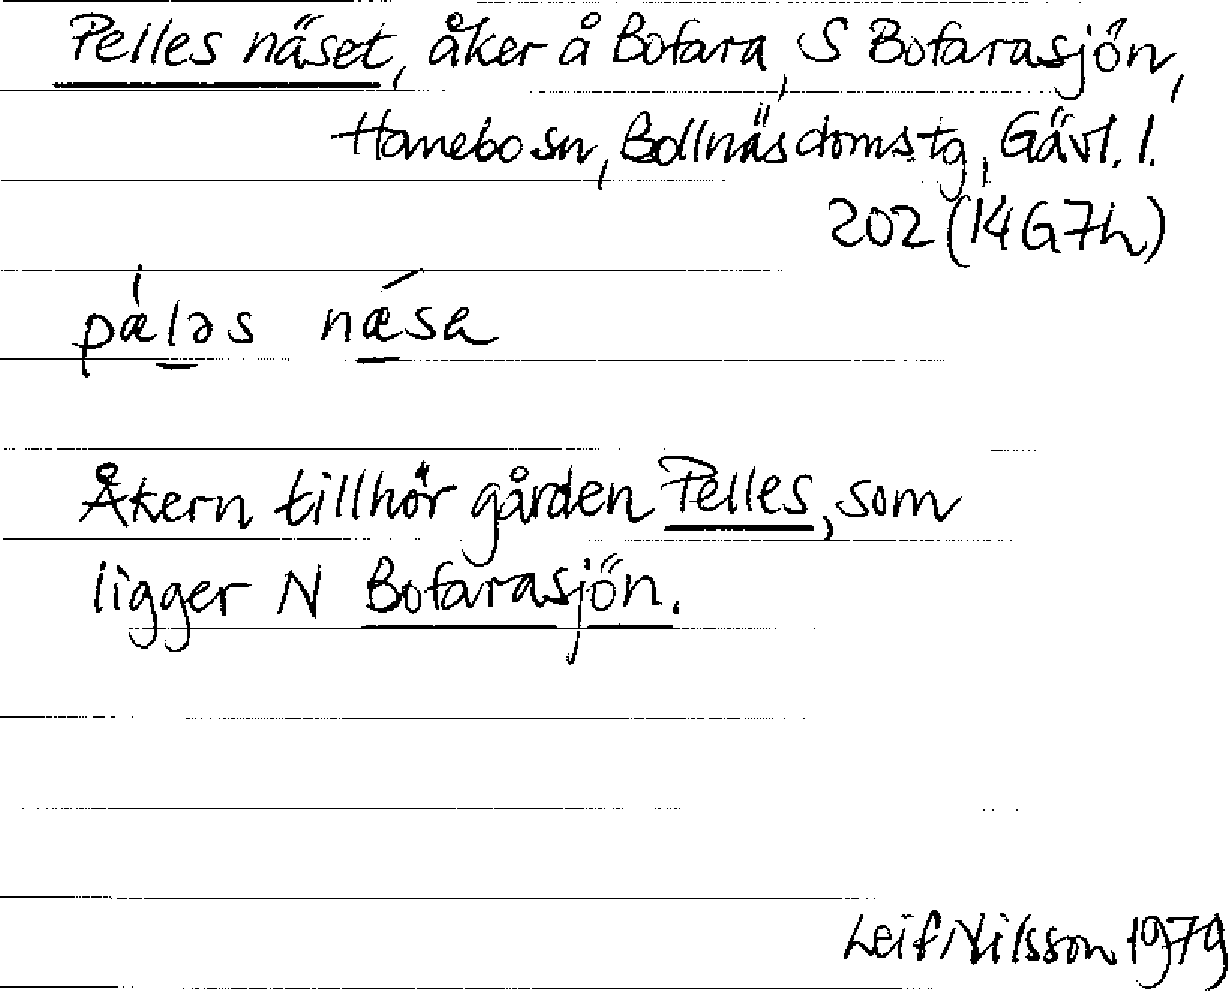 Pelles näset, åker å Bofara, S Bofarasjön,
Hanebo sn, Bollnäs domstg, Gävl. l.
202 (14G7h)
pǽləs nǽsa
Åkern tillhör gården Pelles, som
ligger N Bofarasjön.
Leif Nilsson 1979